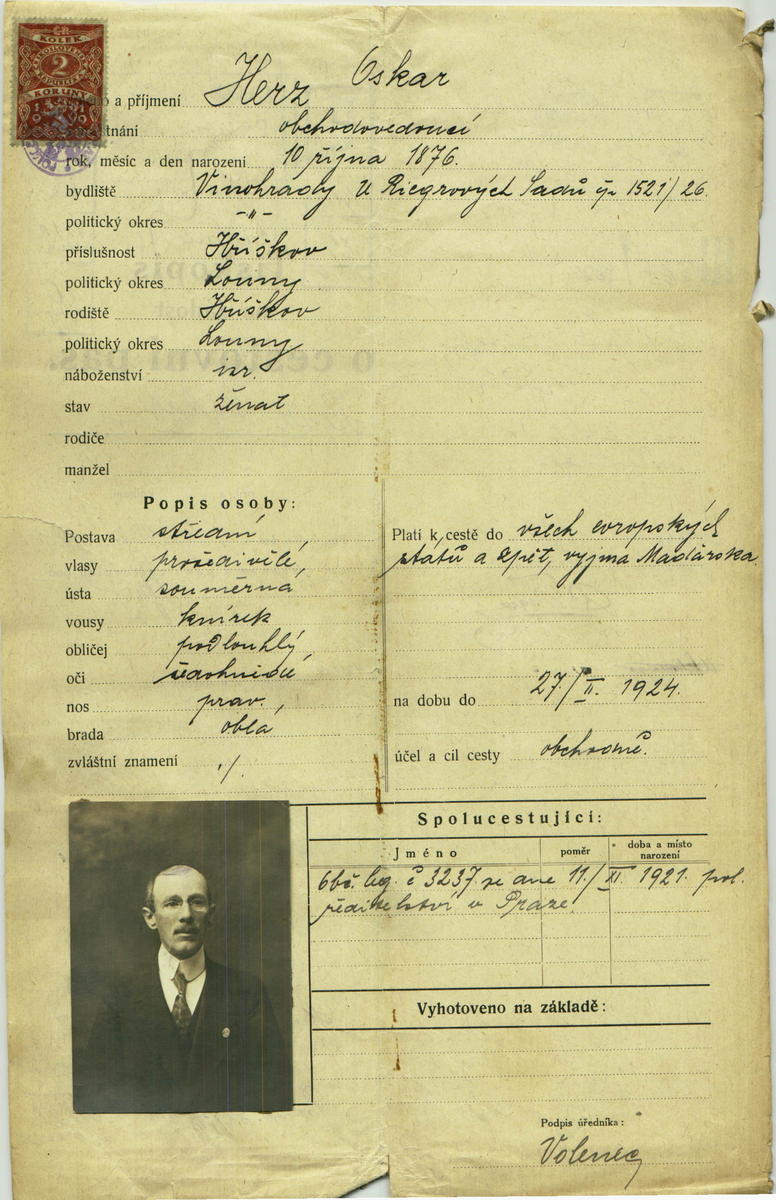 KOLEK
2
KORUNY
a příjmení Herz Oskar
obchodovedoucí
rok, měsíc a den narození 10 října 1876.
bydliště Vinohrady U Riegrových Sadů č. 1521/26.
politický okres -"-
příslušnost Hříškov
politický okres Louny
rodiště Hříškov
politický okres Louny
náboženství izr.
stav ženat
rodiče
manžel
Popis osoby:
Postava střední,
vlasy prošedivělé,
ústa souměrná,
vousy knírek
obličej podlouhlý,
oči
nos prav.,
brada oblá
zvláštní znamení ./.
Platí k cestě do všech evropských
států a zpět, vyjma Maďarska
na dobu do 27/II. 1924.
účel a cil cesty obchodně.
Spolucestující:
Jméno poměr doba a místo narození
obč. leg. č 3237 ze dne 11./XI. 1921. pol.
ředitelství v Praze.
Vyhotoveno na základě:
Podpis úředníka:
Volenec